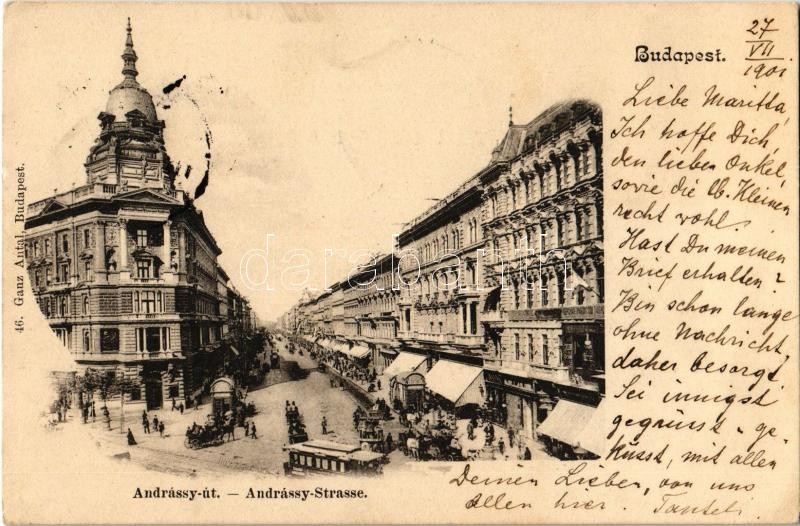 Budapest.
27
VII
1901
Liebe Maritta,
Ich hoffe Dich,
den lieben Onkel,
sowie die lb. Kleinen
recht wohl.
Hast Du meinen
Brief erhalten?
Bin schon lange
ohne Nachricht,
daher besorgt.
Sei innigst
gegrüsst u. ge-
küsst, mit allen
Deinen Lieben, von uns
allen hier.
46. Ganz Antal, Budapest.
darabanth
Andrássy-út. — Andrássy-Strasse.